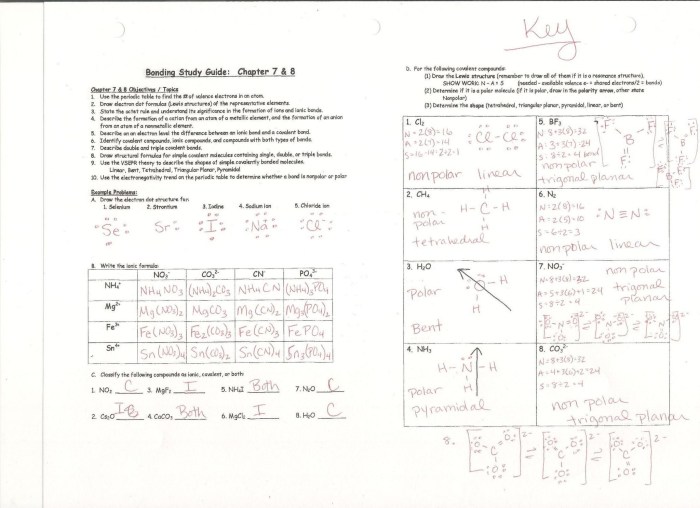 Key
Bonding Study Guide: Chapter 7 & 8
Chapter 7 & 8 Objectives / Topics
1. Use the periodic table to find the # of valence electrons in an atom.
2. Draw electron dot formulas (Lewis structures) of the representative elements.
3. State the octet rule and understand its significance in the formation of ions and ionic bonds.
4. Describe the formation of a cation from an atom of a metallic element, and the formation of an anion
from an atom of a nonmetallic element.
5. Describe on an electron level the difference between an ionic bond and a covalent bond.
6. Identify covalent compounds, ionic compounds, and compounds with both types of bonds.
7. Describe double and triple covalent bonds.
8. Draw structural formulas for simple covalent molecules containing single, double, or triple bonds.
9. Use the VSEPR theory to describe the shapes of simple covalently bonded molecules.
Linear, Bent, Tetrahedral, Triangular Planar, Pyramidal
10. Use the electronegativity trend on the periodic table to determine whether a bond is nonpolar or polar
Example Problems:
A. Draw the electron dot structure for:
1. Selenium 2. Strontium 3. Iodine 4. Sodium ion 5. Chloride ion
Se Sr I Na Cl
B. Write the ionic formula:
NO₃⁻ CO₃²⁻ CN⁻ PO₄³⁻
NH₄⁺ NH₄NO₃ (NH₄)₂CO₃ NH₄CN (NH₄)₃PO₄
Mg²⁺ Mg(NO₃)₂ MgCO₃ Mg(CN)₂ Mg₃(PO₄)₂
Fe³⁺ Fe(NO₃)₃ Fe₂(CO₃)₃ Fe(CN)₃ FePO₄
Sn⁴⁺ Sn(NO₃)₄ Sn(CO₃)₂ Sn(CN)₄ Sn₃(PO₄)₄
C. Classify the following compounds as ionic, covalent, or both:
1. NO₂ C 3. MgF₂ I 5. NH₄I Both 7. N₂O C
2. 4. CaCO₃ Both 6. MgCl₂ I 8. H₂O C
D. For the following covalent compounds:
(1) Draw the Lewis structure (remember to draw all of them if it is a resonance structure).
SHOW WORK: N - A = S (needed - available valence e- = shared electrons/2 = bonds)
(2) Determine if it is a polar molecule (if polar, draw in the polarity arrow, other state
Nonpolar)
(3) Determine the shape (tetrahedral, triangular planar, pyramidal, linear, or bent)
1. Cl₂
N = 2(8) = 16
A = 2(7) = 14
S = 16-14=2÷2=1
Cl - Cl
nonpolar linear
5. BF₃
N = 8+3(8)=32
A = 3+3(7)=24
S = 8÷2=4 bond
nonpolar
trigonal planar
2. CH₄
H - C - H
non-
polar
tetrahedral
6. N₂
N = 2(8)=16
A = 2(5)=10
S = 6÷2=3
:N≡N:
nonpolar linear
3. H₂O
polar
O - H
H
Bent
7. NO₃⁻
N = 8+3(8)=32
A = 5+3(6)+1=24
S = 8÷2=4
non polar
trigonal
planar
4. NH₃
H - N - H
H
polar
pyramidal
8. CO₃²⁻
N = 8+3(8)=32
A = 4+3(6)+2=24
S = 8÷2=4
non polar
trigonal planar
8.